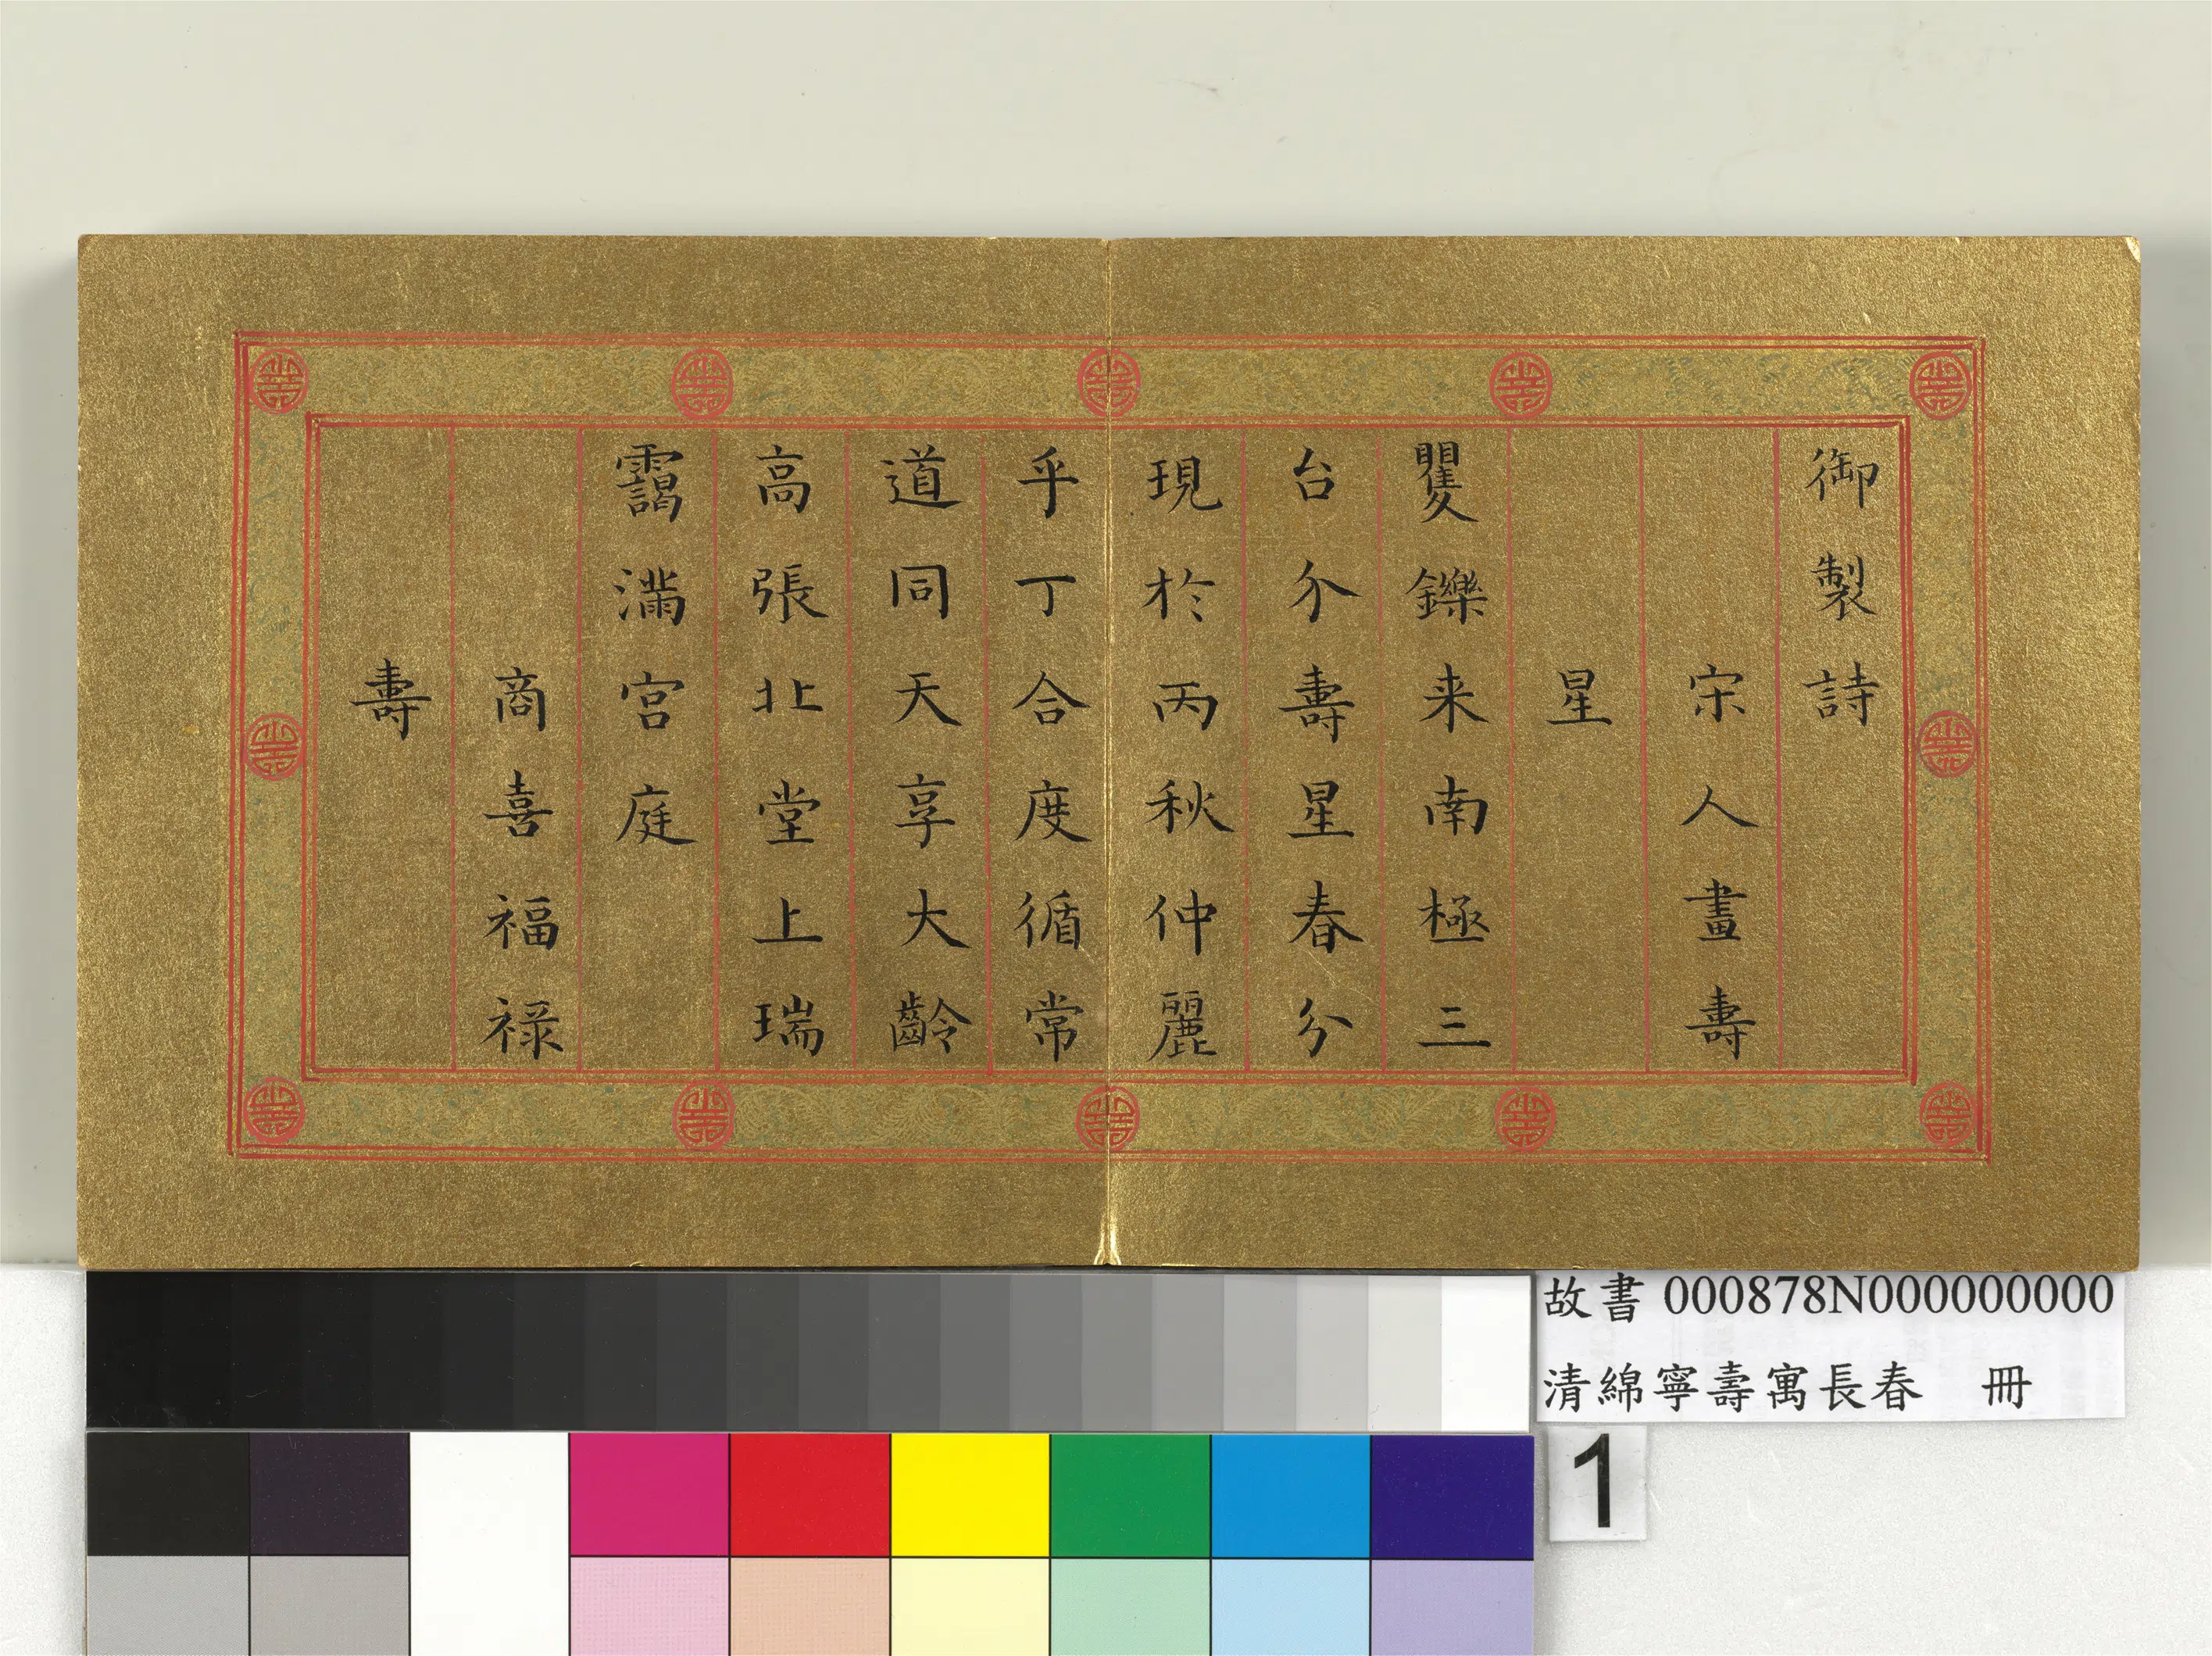 御製詩
宋人畫壽
星
矍鑠来南極三
台介壽星春分
現於丙秋仲麗
乎丁合度循常
道同天享大齡
高張北堂上瑞
靄滿宮庭
商喜福祿
壽
故書 000878N000000000
清綿寧壽寓長春 冊
1